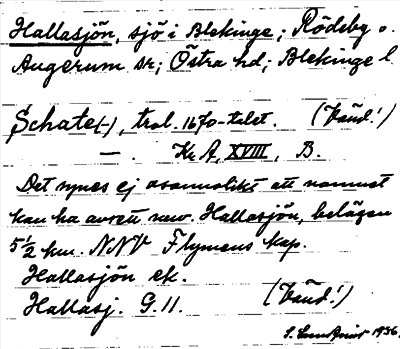 Hallasjön, sjö i Blekinge; Rödeby o.
Augerum sr; Östra hd; Blekinge l.
Schate(-), trol. 1670-talet. (Vänd!)
— . Kr A, XVIII, B.
Det synes ej osannolikt att namnet
kan ha avsett nuv. Hallasjön, belägen
5½ km. NNV Flymens kap.
Hallasjön ek.
Hallasj. G. 11. (Vänd!)
1936.